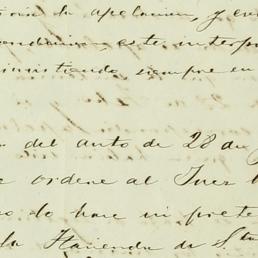 de apelacion, y en
este interp
insistiendo siempre en
del auto de 28 de
ordene al Juez
do hace mi prete
la Hacienda de Sta